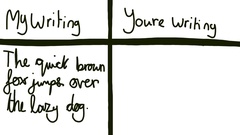 My Writing
Youre writing
The quick brown
fox jumps over
the lazy dog.